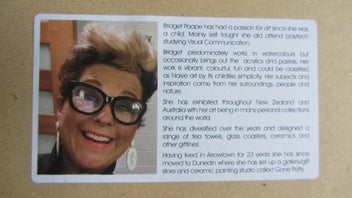 Bridget Paape has had a passion for art since she was
a child. Mainly self taught she did attend polytech
studying Visual Communication.
Bridget predominately works in watercolours but
occasionally brings out the acrylics and pastels. Her
work is vibrant, colourful, fun and could be classified
as Naive art by its childlike simplicity. Her subjects and
inspiration come from her surroundings, people and
nature.
She has exhibited throughout New Zealand and
Australia with her art being in many personal collections
around the world.
She has diversified over the years and designed a
range of tea towels, glass coasters, ceramics and
other giftlines.
Having lived in Arrowtown for 23 years she has since
moved to Dunedin where she has set up a gallery/gift
store and ceramic painting studio called Gone Potty.